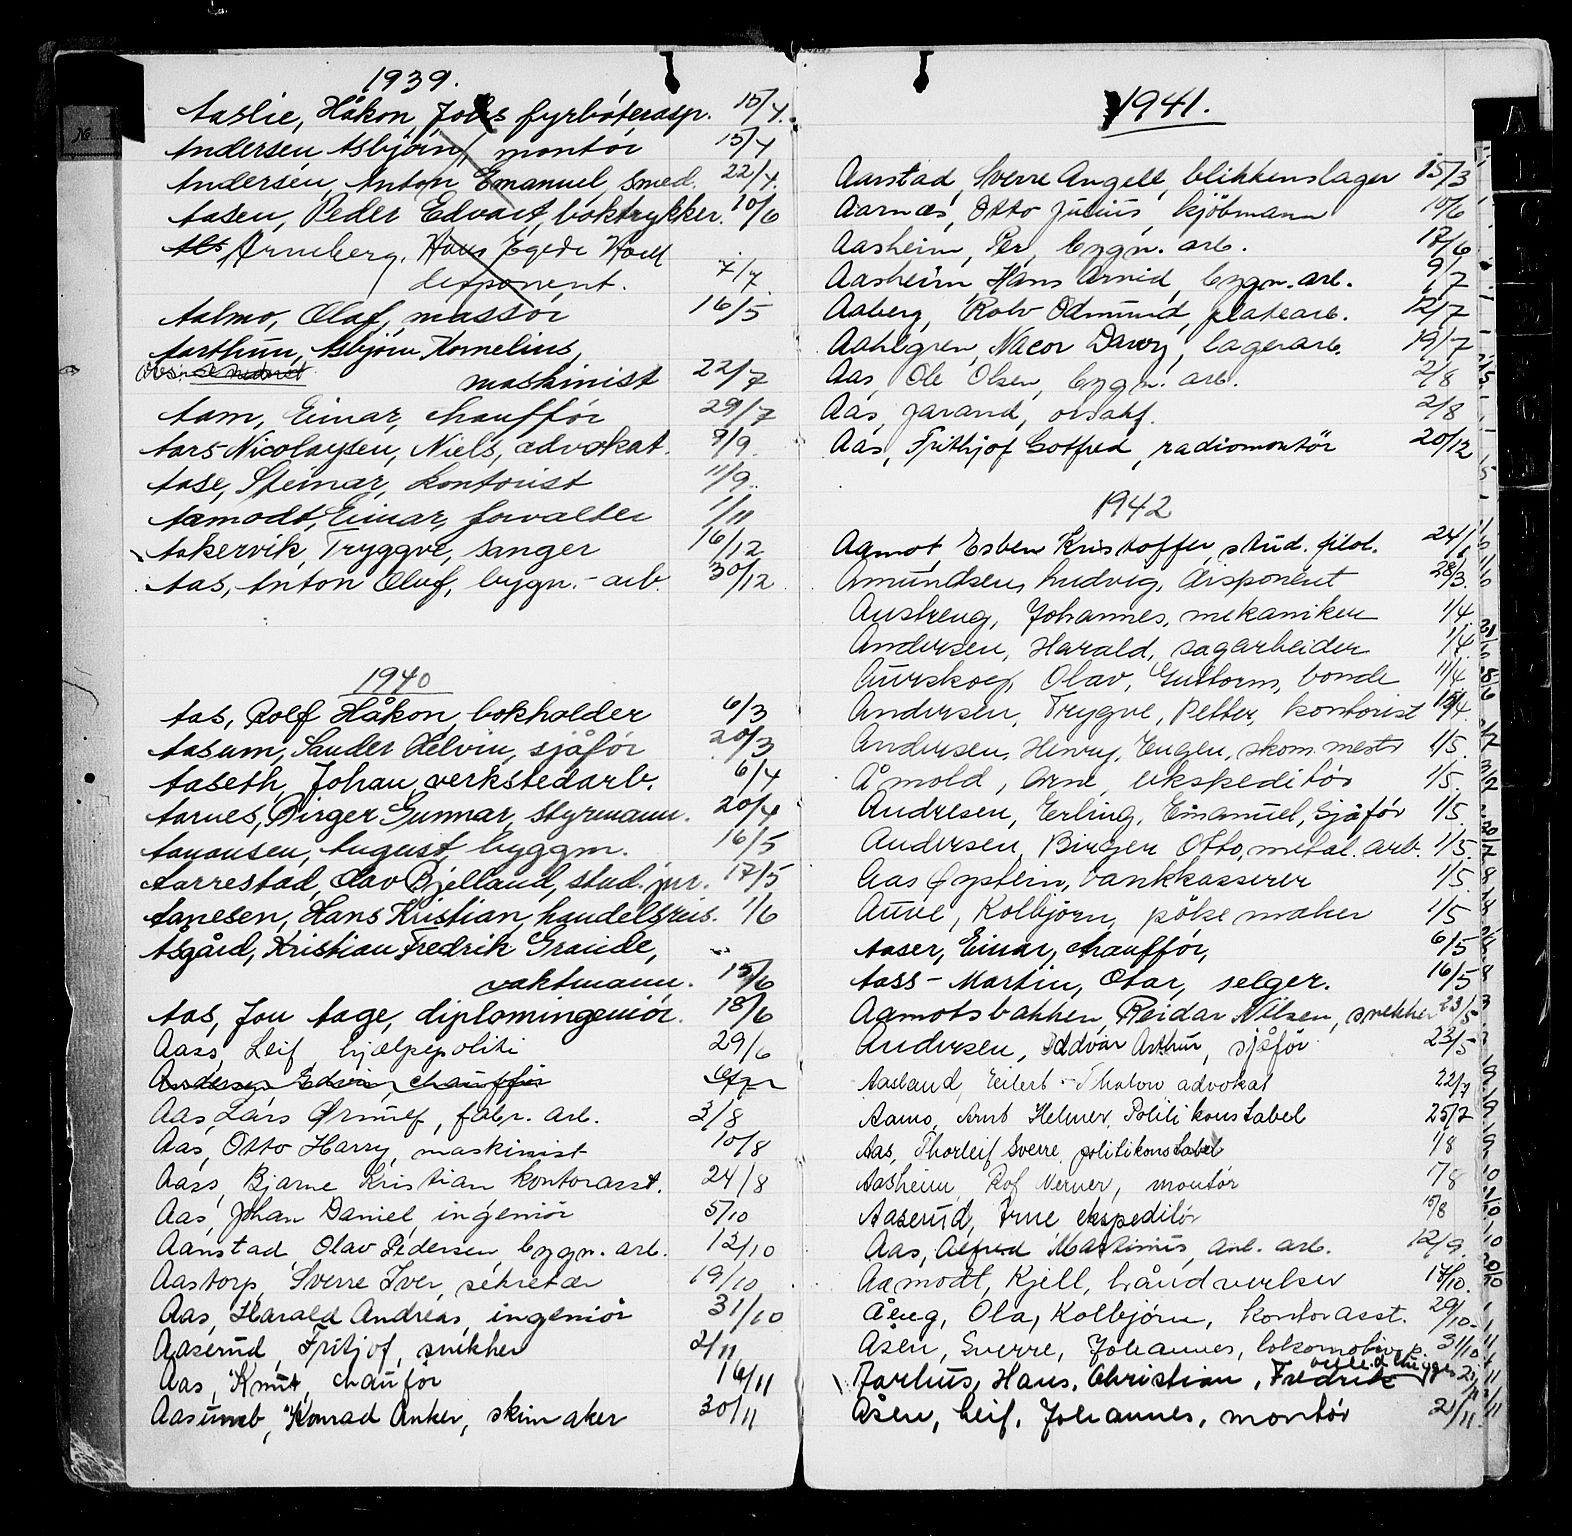 1939.
Aaslie, Håkon Johs fyrbøterasp. 15/4.
Andersen Asbjørn, montør 15/4
Andersen, Anton Emanuel, smed. 22/4.
Aasen, Peder Edvart, boktrykker. 10/6
Arneberg, Hans Egede
disponent. 7/7
Aalmo, Olaf, massør 16/5
Aarthun, Asbjørn Kornelius,
maskinist 22/7
Aam, Einar, chauffør 29/7
Aars Nicolaysen, Niels, advokat. 9/9.
Aase, Steinar, kontorist 11/9.
Aamodt, Einar, forvalter 1/11
Aakervik, Tryggve, sanger 16/12
Aas, Anton Oluf, bygn.-arb. 30/12
1940
Aas, Rolf Håkon, bokholder 6/3
Aasum, Sander Helvin, sjåfør 20/3
Aaseth, Johan, verkstedarb. 6/4
Aarnes, Birger Gunnar, styrmann. 20/4
August, byggm. 16/5
Aarrestad, Olav Bjelland, stud. jur. 17/5
Aanesen, Hans Kristian, handelsreis. 1/6
Asgård, Kristian Fredrik Grande,
vaktmann. 15/6
Aas, Jon Aage, diplomingeniør. 18/6
Aass, Leif, hjælpepoliti 29/6
Andersen Edvin, chauffør
Aas, Lars Ørnulf, fabr. arb. 3/8
Aas, Otto Harry, maskinist 10/8
Aass, Bjarne Kristian kontorasst. 24/8
Aas, Johan Daniel, ingeniør 5/10
Aanstad Olav Pedersen bygn. arb. 12/10
Aastorp, Sverre Iver, sekretær 19/10
Aas, Harald Andreas, ingeniør 31/10
Aaserud, Fritjof, snekker 2/11
Aas, Knut, chaufør 16/11
Aasumb, Konrad Anker, skimaker 30/11
1941.
Aarstad, Sverre Angell, blikkenslager 15/3
Aarnæs, Otto Julius, kjøbmann 10/6
Aasheim, Per, bygn. arb. 17/6
Aasheim, Hans Arnid, bygn. arb. 9/7
Aaberg, Rolv Odmund, platearb. 12/7
Aahlgren, Nacor Davy, lagerarb. 19/7
Aas, Ole Olsen, bygn. arb. 2/8
Aas, Jarand, 2/8
Aas, Frithjof Gotfred, radiomontör 20/12
1942
Aamot, Esben Kristoffer, stud. filol. 24/1
Amundsen, Ludvig, disponent 28/3.
Austreng, Johannes, mekaniker 1/4.
Andersen, Harald, sagarbeider 1/4
Aurskog, Olav, Guttorm, bonde 11/4
Andersen, Trygve, Petter, kontorist
Andersen, Henry, Eugen, skom. mestr 1/5.
Åmold, Arne, ekspeditør 1/5.
Andresen, Erling, Emanuel, sjåfør 1/5.
Andersen, Birger Otto, metal. arb. 1/5.
Aas Øystein, bankkasserer 1/5
Aune, Kolbjørn, pølsemaker 1/5
Aaser, Einar, chauffør, 6/5
Aass-Martin, Otar, selger. 16/5
Aamotsbakken, Reidar Nilsen, snekker 23/5
Andersen, Oddvar Arthur, sjåfør 23/5
Aasland, Eilert-Thalow advokat 22/7
Aamo, Arnt Helmer, Politikonstabel 25/7
Aas, Thorleif Sverre, politikonstabel 1/8
Aasheim, Rof Verner, montør 1/8
Aaserud, Arne ekspeditør 15/8
Aas, Alfred Martinius, anl. arb. 12/9.
Aamodt, Kjell, håndverker 17/10.
Åeng, Ola, Kolbjørn, kontorasst. 29/10.
Åsen, Sverre, Johannes, 31/10
Aarhus, Hans, Christian, Fredrik
Åsen, Leif, Johannes, montør 21/11